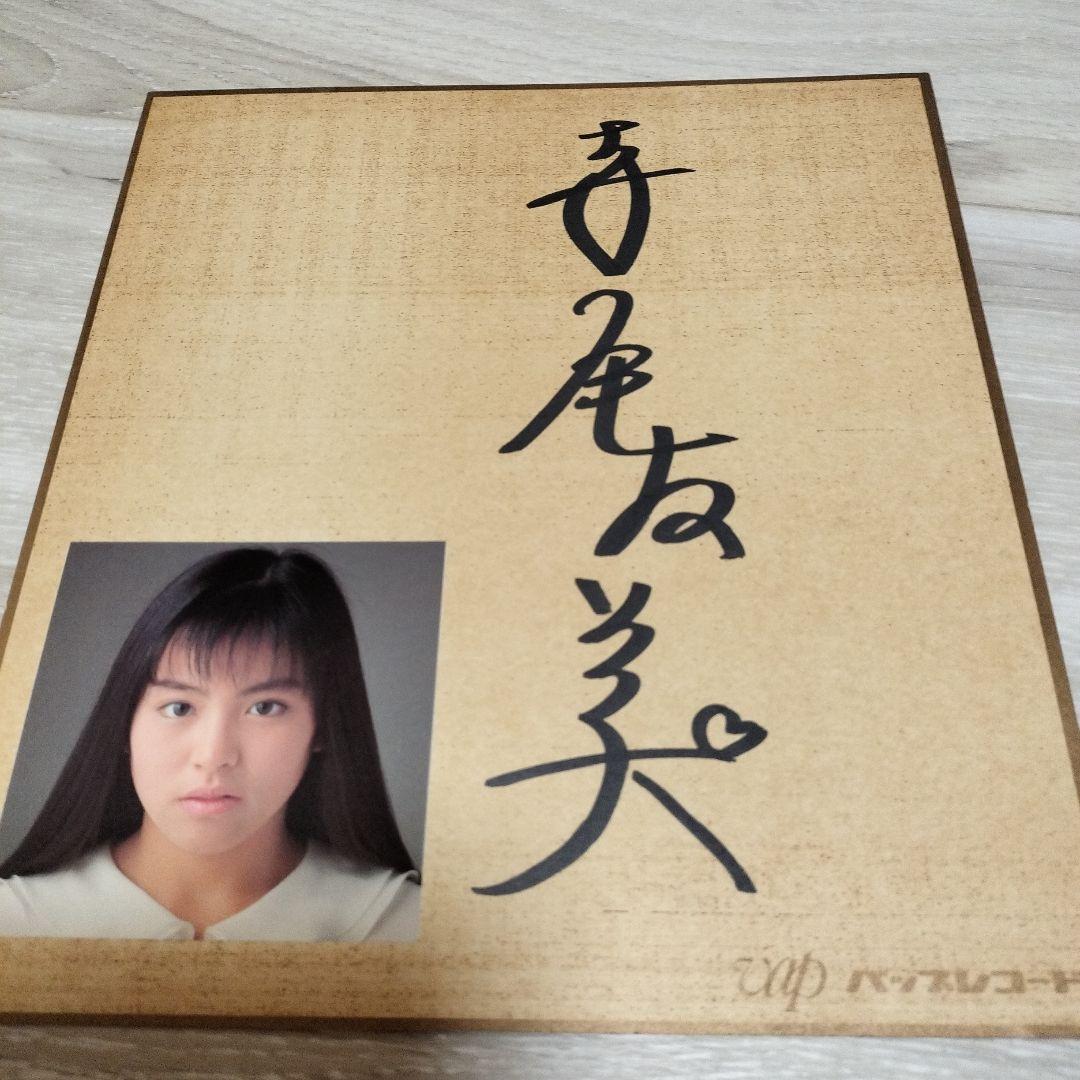 寺尾友美
vap バップレコード